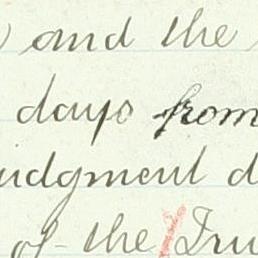 ) and the
days from
udgment d
of the Tru